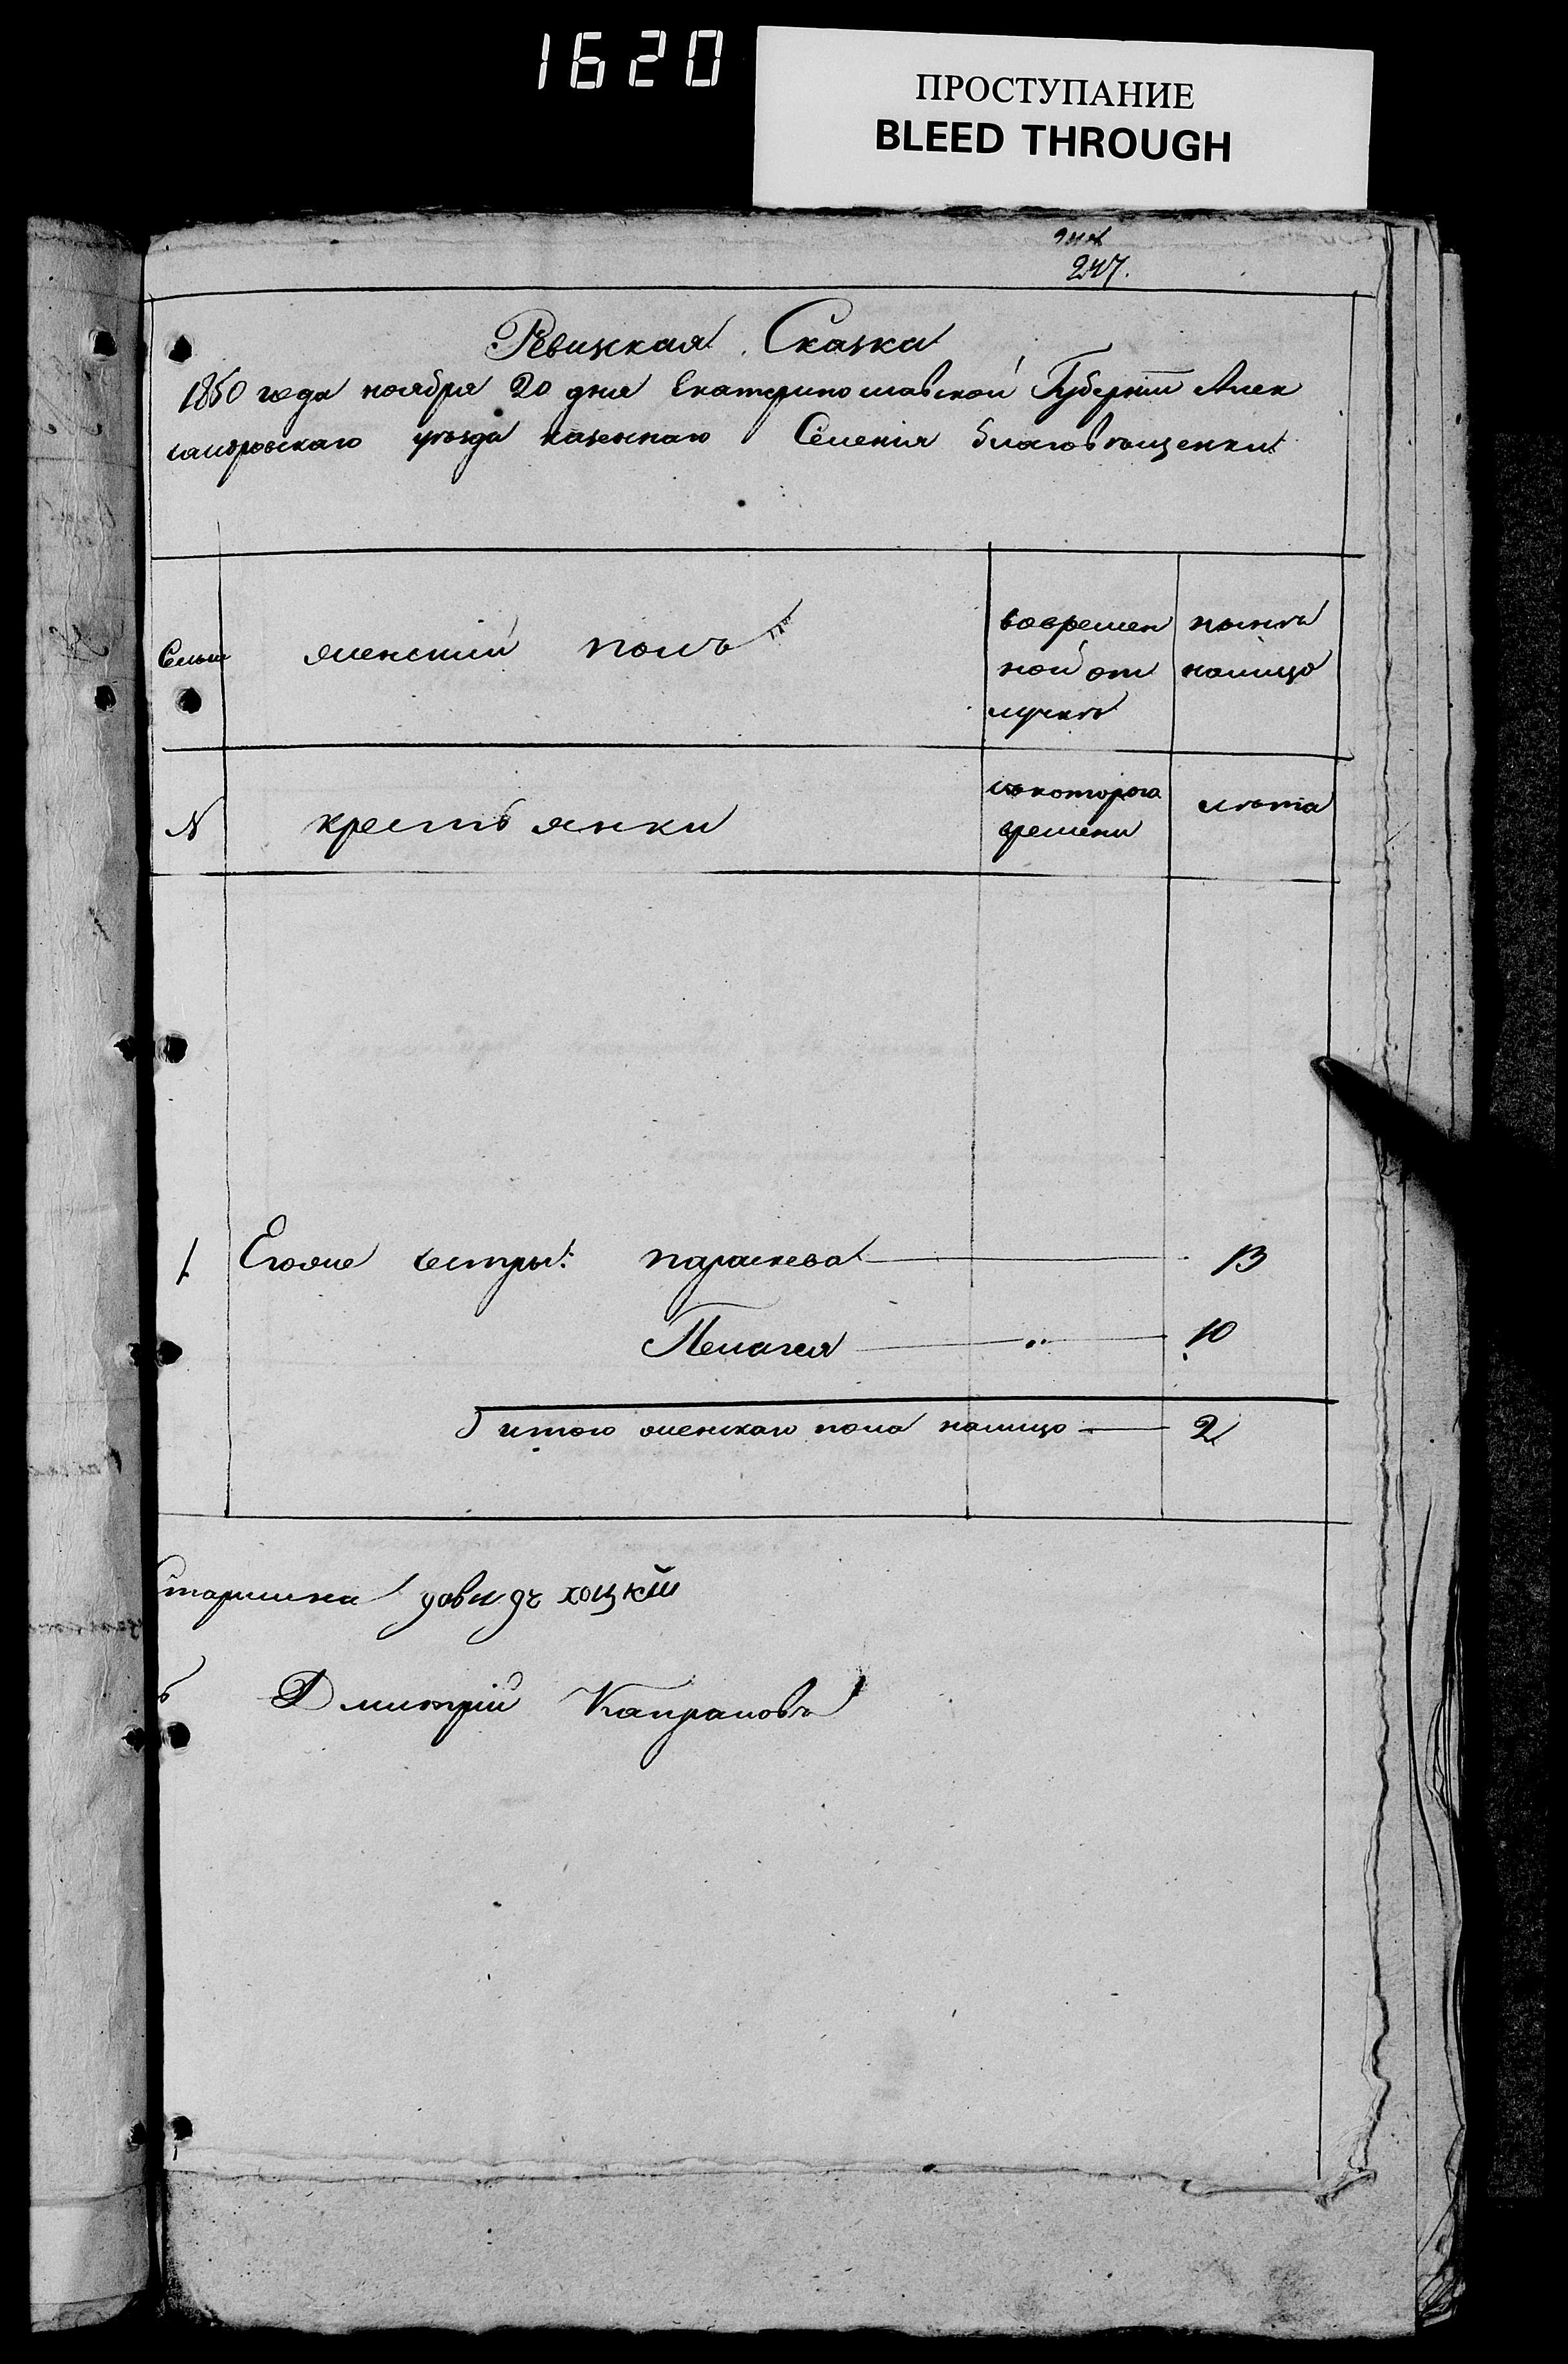 1620
ПРОСТУПАНИЕ
BLEED THROUGH
247.
Ревизкая Сказка
1850 года ноября 20 дня Екатеринославской Губернiи Алек
сандровскаго уезда казеннаго Селенiя благовещенки
Семьи
женскiй полъ
вовремен
ной от
лучке
ныне
налицо
N
крестьянки
скоторого
времени
лета
1. Егоже сестры: параскева 13
Пелагея " 10
итого женскаго пола налицо 2
Старшина давидъ хоцкiй
ъ Дмитрiй Капрановъ